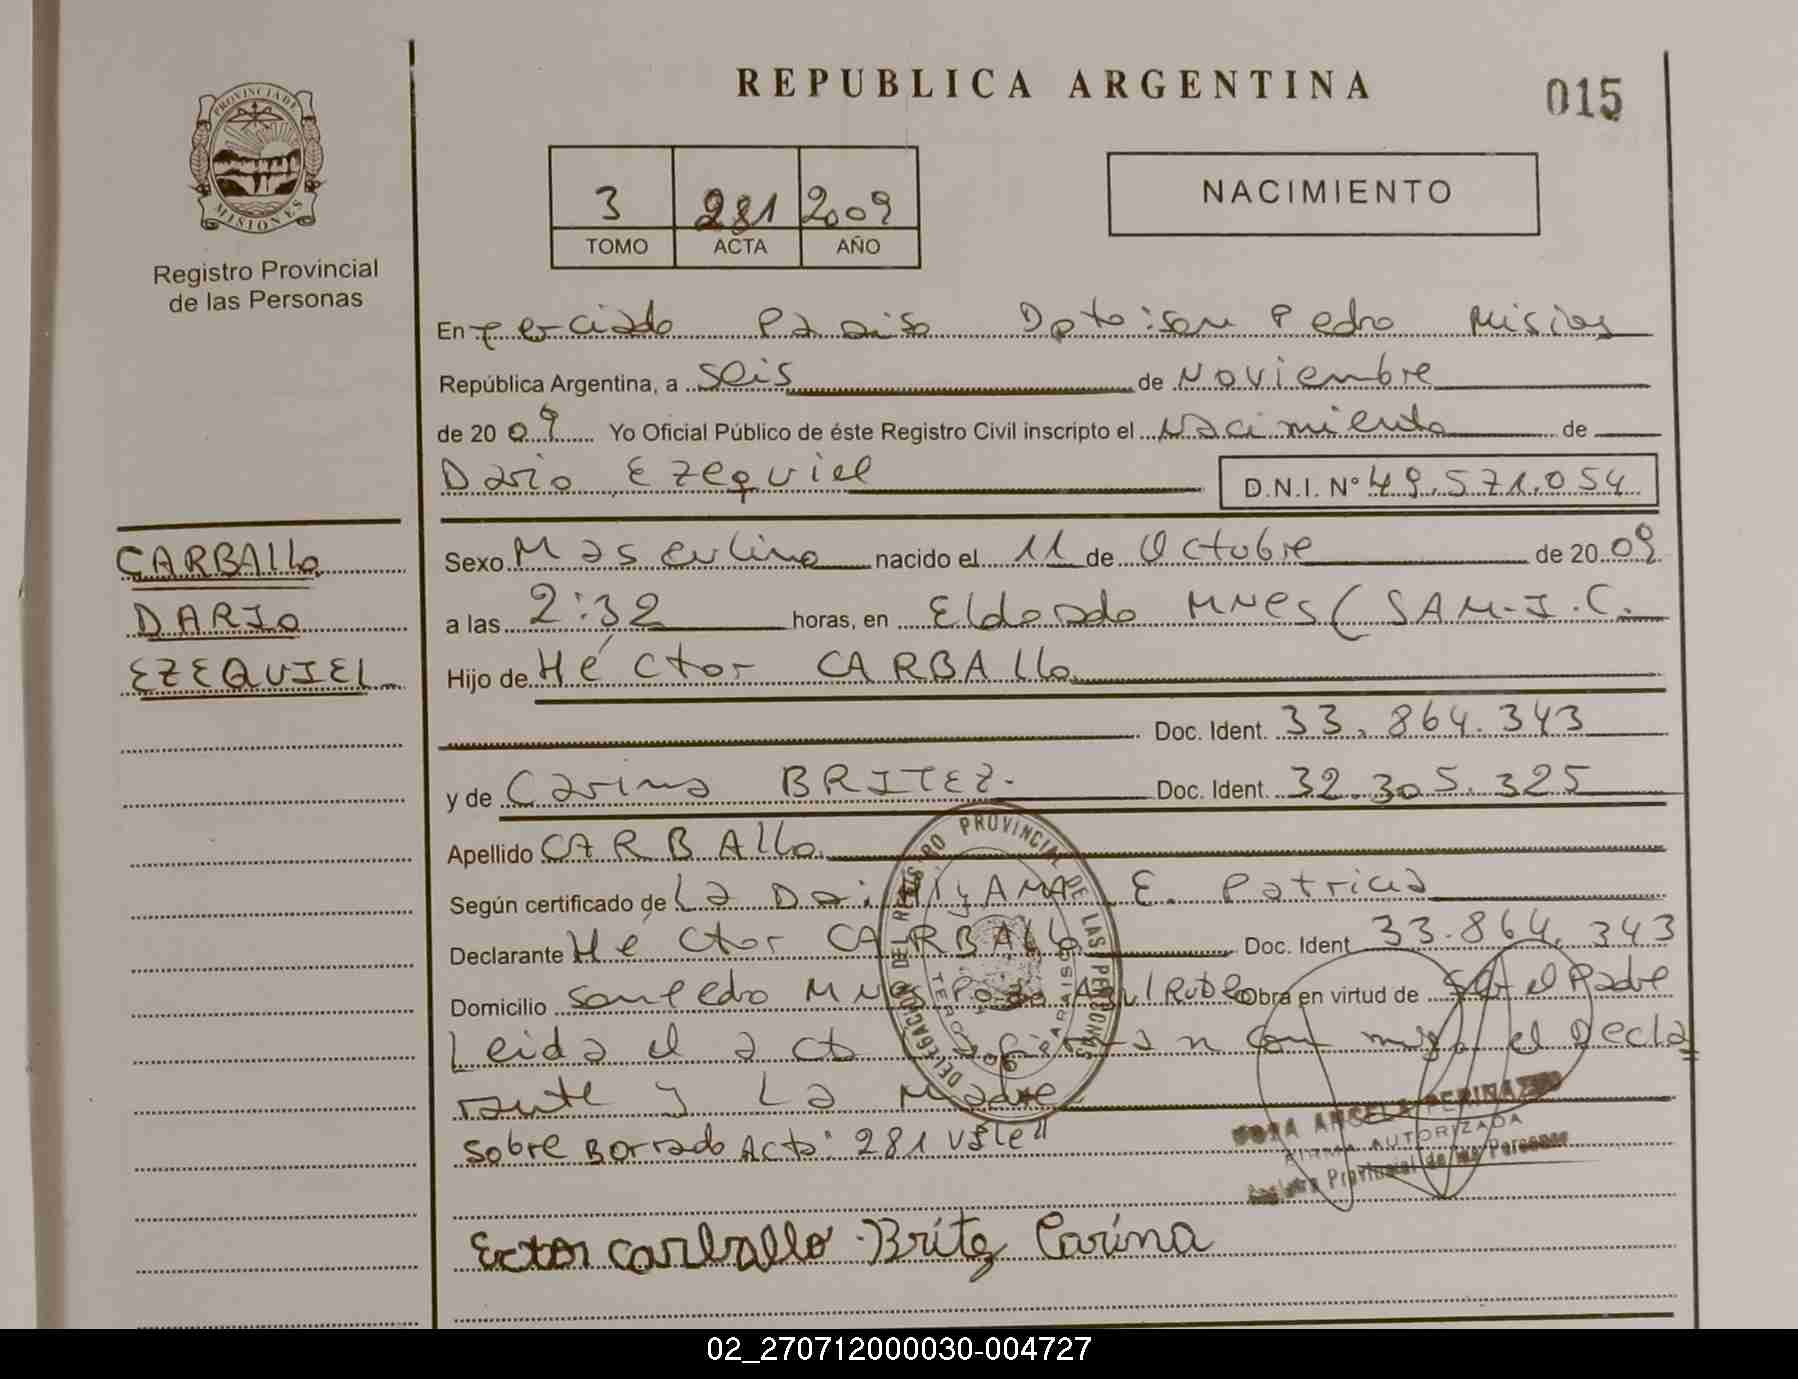 REPUBLICA ARGENTINA
015
PROVINCIA DE
MISIONES
Registro Provincial
de las Personas
3 281 2009
TOMO ACTA AÑO
NACIMIENTO
En Terciado Paraiso Dpto: San Pedro Misiones
República Argentina, a seis de Noviembre
de 2009 Yo Oficial Público de éste Registro Civil inscripto el Nacimiento de
Dario Ezequiel D.N.I. Nº 49.571.054
CARBALLO
DARIO
EZEQUIEL
Sexo Masculino nacido el 11 de Octubre de 2009
a las 2:32 horas, en Eldorado MNES (SAM-I.C.
Hijo de Héctor CARBALLO
Doc. Ident. 33.864.343
y de Carina BRITEZ. Doc. Ident. 32.305.325
Apellido CARBALLO
Según certificado de La Dai E. Patricia
Declarante Héctor CARBALLO Doc. Ident 33.864.343
Domicilio San Pedro MNES Pozo Azul Ruta Obra en virtud de Ser el Padre
Leida el acta firman con migo el Decla
rante y La Madre
Sobre Borrado Acta: 281 Vale"
DELEGACION DEL REGISTRO PROVINCIAL DE LAS PERSONAS
PARAISO
ANGELA
FIRMA AUTORIZADA
Registro Provincial de las Personas
Ector carballo Britez Carina
02_270712000030-004727